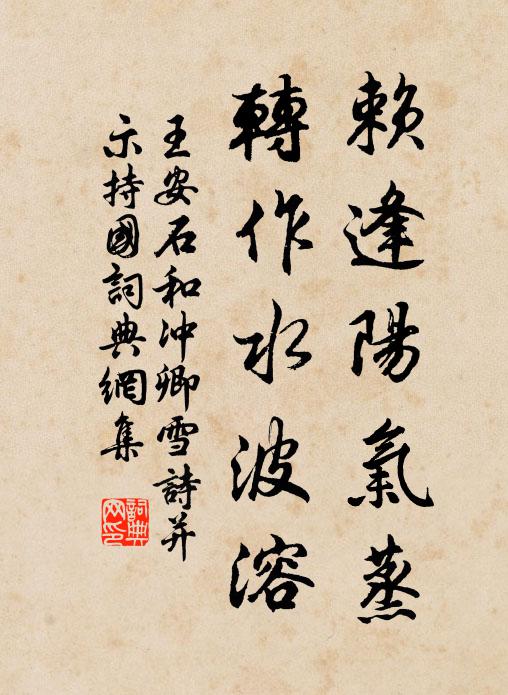 賴逢陽氣蒸
轉作水波溶
王安石和沖卿雪詩并
示持國詞典網集
詞典
网印